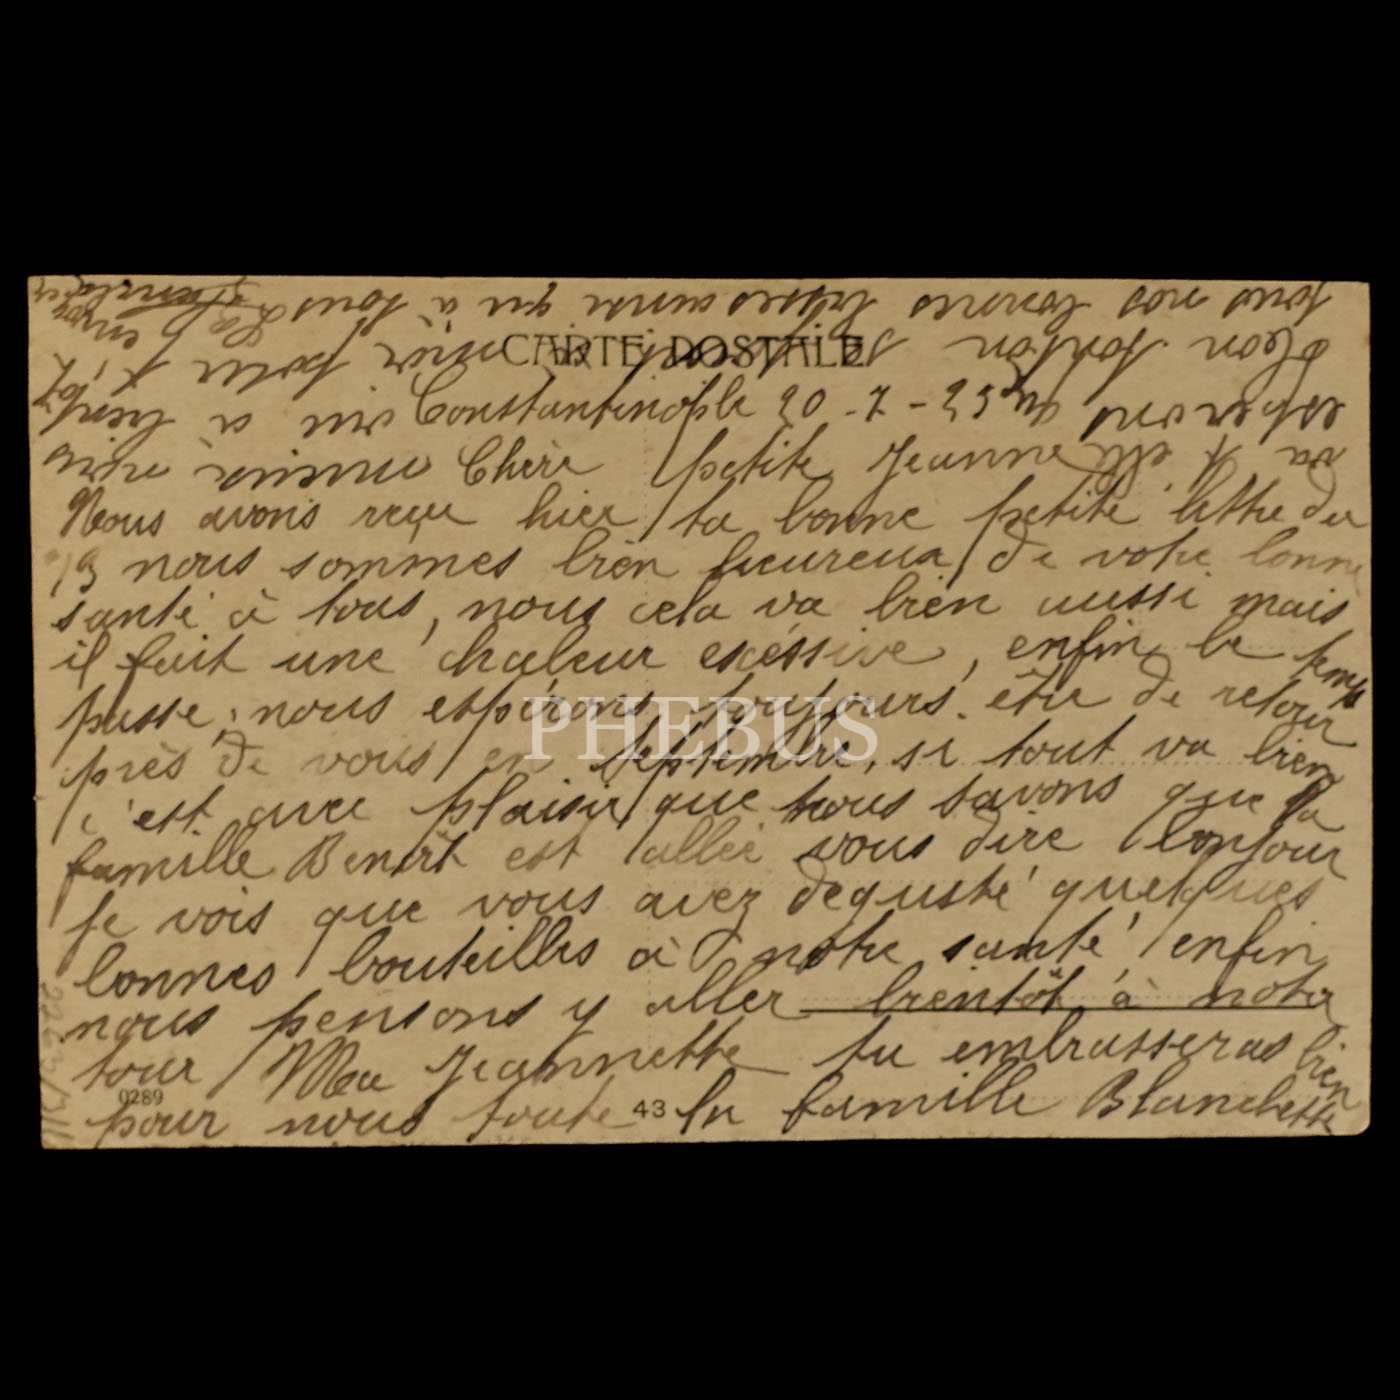 CARTE POSTALE
Constantinople 20-7-23
Chère petite Jeanne
Nous avons reçu hier ta bonne petite lettre du
13 nous sommes bien heureux de votre bonne
santé à tous, nous cela va bien aussi mais
il fait une chaleur exéssive, enfin le temps
passe, nous espérons toujours être de retour
près de vous en Septembre, si tout va bien
c'est avec plaisir que nous savons que la
famille Benoit est allée vous dire bonjour
je vois que vous avez degusté quelques
bonnes bouteilles à notre santé, enfin
nous pensons y aller bientôt à notre
tour Ma Jeannette tu embrasseras bien
pour nous toute la famille Blanchette
0289
43
va
espérons
bientôt
tonton
pour t
tous nos bonnes caresses ainsi qu'à tous
PHEBUS